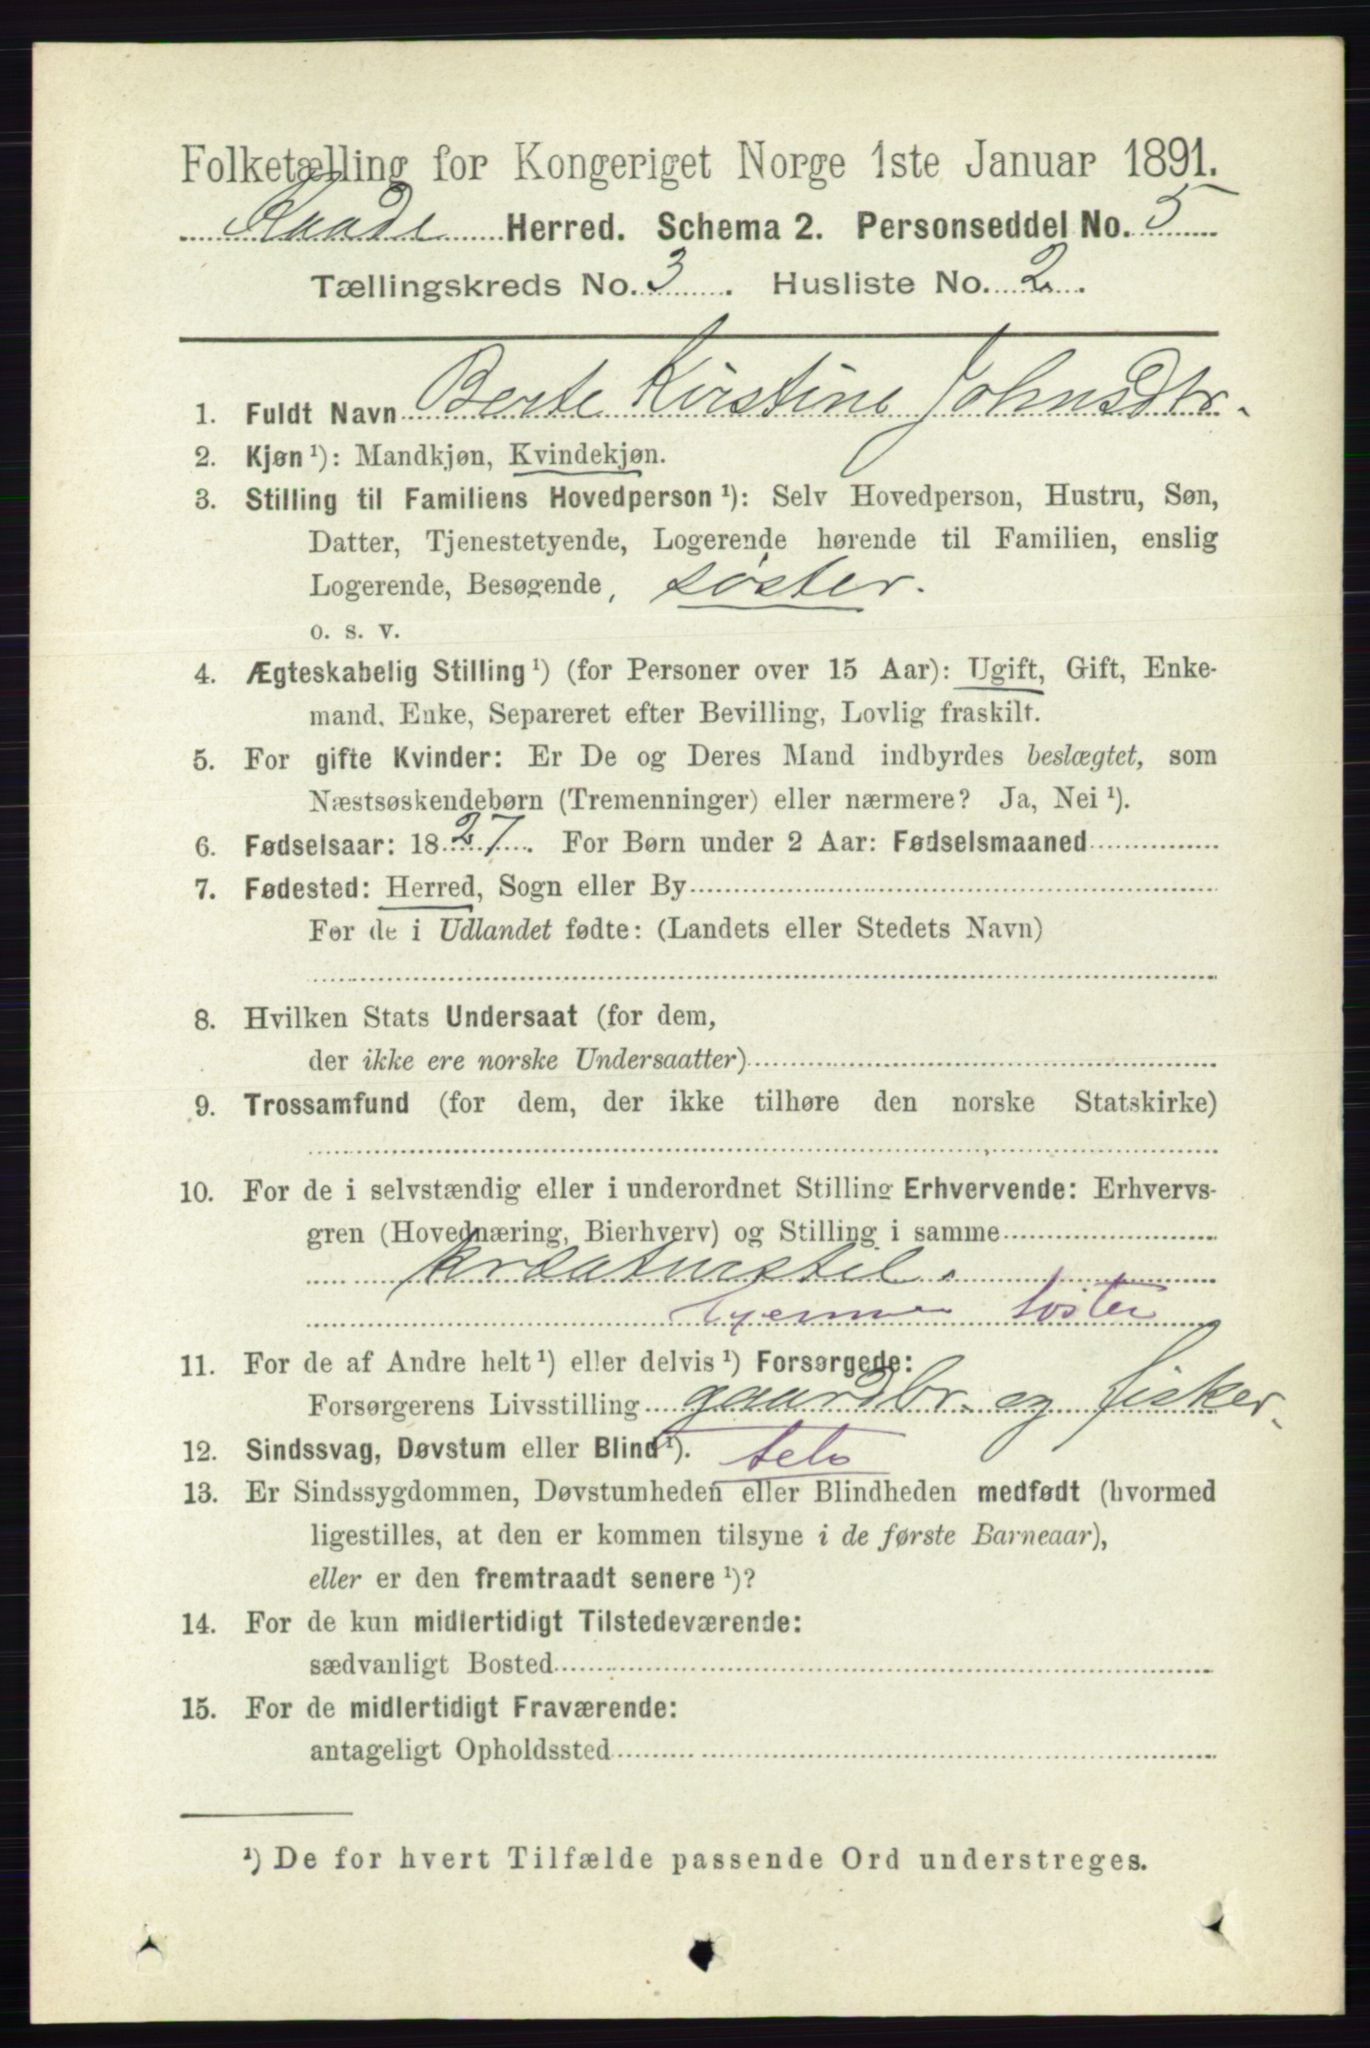 Folketælling for Kongeriget Norge 1ste Januar 1891.
Raade Herred. Schema 2. Personseddel No. 5
Tællingskreds No. 3. Husliste No. 2.
1. Fuldt Navn Berte Kirstine Johnsdtr.
2. Kjøn ¹): Mandkjøn, Kvindekjøn.
3. Stilling til Familiens Hovedperson ¹): Selv Hovedperson, Hustru, Søn,
Datter, Tjenestetyende, Logerende hørende til Familien, enslig
Logerende, Besøgende, søster.
o. s. v.
4. Ægteskabelig Stilling ¹) (for Personer over 15 Aar): Ugift, Gift, Enke-
mand, Enke, Separeret efter Bevilling, Lovlig fraskilt.
5. For gifte Kvinder: Er De og Deres Mand indbyrdes beslægtet, som
Næstsøskendebørn (Tremenninger) eller nærmere? Ja, Nei ¹).
6. Fødselsaar: 1827. For Børn under 2 Aar: Fødselsmaaned
7. Fødested: Herred, Sogn eller By
For de i Udlandet fødte: (Landets eller Stedets Navn)
8. Hvilken Stats Undersaat (for dem,
der ikke ere norske Undersaatter)
9. Trossamfund (for dem, der ikke tilhøre den norske Statskirke)
10. For de i selvstændig eller i underordnet Stilling Erhvervende: Erhvervs-
gren (Hovednæring, Bierhverv) og Stilling i samme
kreaturstel.
hjemme søster
11. For de af Andre helt ¹) eller delvis ¹) Forsørgede:
Forsørgerens Livsstilling gaardbr. og fisker.
12. Sindssvag, Døvstum eller Blind ¹).
13. Er Sindssygdommen, Døvstumheden eller Blindheden medfødt (hvormed
ligestilles, at den er kommen tilsyne i de første Barneaar),
eller er den fremtraadt senere ¹)?
14. For de kun midlertidigt Tilstedeværende:
sædvanligt Bosted
15. For de midlertidigt Fraværende:
antageligt Opholdssted
¹) De for hvert Tilfælde passende Ord understreges.